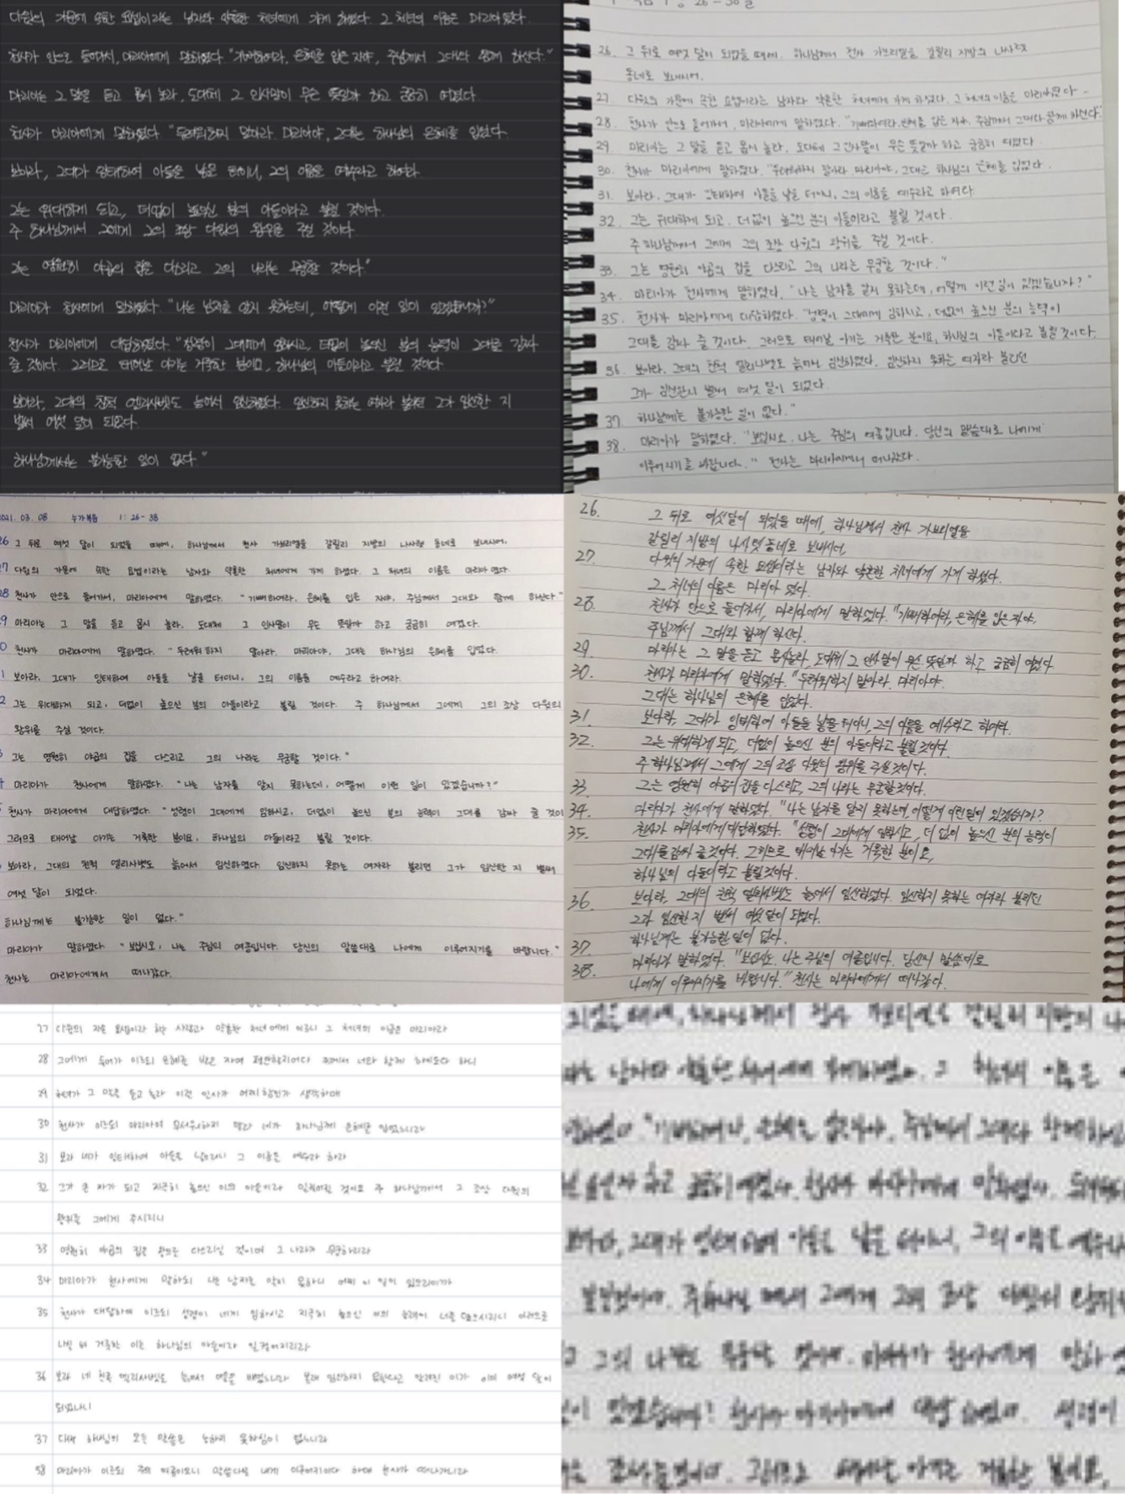 다윗의 가문에 속한 요셉이라는 남자와 약혼한 처녀에게 가게 하셨다. 그 처녀의 이름은 마리아였다.
천사가 안으로 들어가서, 마리아에게 말하였다. "기뻐하여라, 은혜를 입은 자야, 주님께서 그대와 함께 하신다."
마리아는 그 말을 듣고 몹시 놀라, 도대체 그 인사말이 무슨 뜻일까 하고 궁금히 여겼다.
천사가 마리아에게 말하였다. "두려워하지 말아라. 마리아야, 그대는 하나님의 은혜를 입었다.
보아라, 그대가 잉태하여 아들을 낳을 터이니, 그의 이름은 예수라고 하여라.
그는 위대하게 되고, 더없이 높으신 분의 아들이라고 불릴 것이다.
주 하나님께서 그에게 그의 조상 다윗의 왕위를 주실 것이다.
그는 영원히 야곱의 집을 다스리고 그의 나라는 무궁할 것이다."
마리아가 천사에게 말하였다. "나는 남자를 알지 못하는데, 어떻게 이런 일이 있겠습니까?"
천사가 마리아에게 대답하였다. "성령이 그대에게 임하시고, 더없이 높으신 분의 능력이 그대를 감싸
줄 것이다. 그러므로 태어날 아기는 거룩한 분이요, 하나님의 아들이라고 불릴 것이다.
보아라, 그대의 친척 엘리사벳도 늙어서 임신하였다. 임신하지 못하는 여자라 불리던 그가 임신한 지
벌써 여섯 달이 되었다.
하나님께서는 불가능한 일이 없다."
26. 그 뒤로 여섯 달이 되었을 때에, 하나님께서 천사 가브리엘을 갈릴리 지방의 나사렛
동네로 보내시어,
27. 다윗의 가문에 속한 요셉이라는 남자와 약혼한 처녀에게 가게 하셨다. 그 처녀의 이름은 마리아였다.
28. 천사가 안으로 들어가서, 마리아에게 말하였다. "기뻐하여라, 은혜를 입은 자야, 주님께서 그대와 함께 하신다."
29. 마리아는 그 말을 듣고 몹시 놀라, 도대체 그 인사말이 무슨 뜻일까 하고 궁금히 여겼다.
30. 천사가 마리아에게 말하였다. "두려워하지 말아라 마리아야, 그대는 하나님의 은혜를 입었다.
31. 보아라, 그대가 잉태하여 아들을 낳을 터이니, 그의 이름을 예수라고 하여라.
32. 그는 위대하게 되고, 더없이 높으신 분의 아들이라고 불릴 것이다.
주 하나님께서 그에게 그의 조상 다윗의 왕위를 주실 것이다.
33. 그는 영원히 야곱의 집을 다스리고 그의 나라는 무궁할 것이다."
34. 마리아가 천사에게 말하였다. "나는 남자를 알지 못하는데, 어떻게 이런 일이 있겠습니까?"
35. 천사가 마리아에게 대답하였다. "성령이 그대에게 임하시고, 더없이 높으신 분의 능력이
그대를 감싸 줄 것이다. 그러므로 태어날 아기는 거룩한 분이요, 하나님의 아들이라고 불릴 것이다.
36. 보아라, 그대의 친척 엘리사벳도 늙어서 임신하였다. 임신하지 못하는 여자라 불리던
그가 임신한지 벌써 여섯 달이 되었다.
37. 하나님께는 불가능한 일이 없다."
38. 마리아가 말하였다. "보십시오, 나는 주님의 여종입니다. 당신의 말씀대로 나에게
이루어지기를 바랍니다." 천사는 마리아에게서 떠나갔다.
021. 03. 08 누가복음 1:26-38
26 그 뒤로 여섯 달이 되었을 때에, 하나님께서 천사 가브리엘을 갈릴리 지방의 나사렛 동네로 보내시어,
27 다윗의 가문에 속한 요셉이라는 남자와 약혼한 처녀에게 가게 하셨다. 그 처녀의 이름은 마리아였다.
28 천사가 안으로 들어가서, 마리아에게 말하였다. "기뻐하여라, 은혜를 입은 자야, 주님께서 그대와 함께 하신다"
9 마리아는 그 말을 듣고 몹시 놀라, 도대체 그 인사말이 무슨 뜻일까 하고 궁금히 여겼다.
0 천사가 마리아에게 말하였다. "두려워 하지 말아라. 마리아야, 그대는 하나님의 은혜를 입었다.
1 보아라, 그대가 잉태하여 아들을 낳을 터이니, 그의 이름을 예수라고 하여라.
2 그는 위대하게 되고, 더없이 높으신 분의 아들이라고 불릴 것이다. 주 하나님께서 그에게 그의 조상 다윗의
왕위를 주실 것이다.
그는 영원히 야곱의 집을 다스리고 그의 나라는 무궁할 것이다."
마리아가 천사에게 말하였다. "나는 남자를 알지 못하는데, 어떻게 이런 일이 있겠습니까?"
천사가 마리아에게 대답하였다. "성령이 그대에게 임하시고, 더없이 높으신 분의 능력이 그대를 감싸 줄 것이
그러므로 태어날 아기는 거룩한 분이요, 하나님의 아들이라고 불릴 것이다.
보아라, 그대의 친척 엘리사벳도 늙어서 임신하였다. 임신하지 못하는 여자라 불리던 그가 임신한 지 벌써
여섯 달이 되었다.
하나님께는 불가능한 일이 없다."
마리아가 말하였다. "보십시오, 나는 주님의 여종입니다. 당신의 말씀대로 나에게 이루어지기를 바랍니다."
천사는 마리아에게서 떠나갔다.
26. 그 뒤로 여섯달이 되었을 때에, 하나님께서 천사 가브리엘을
갈릴리 지방의 나사렛 동네로 보내시어,
27. 다윗의 가문에 속한 요셉이라는 남자와 약혼한 처녀에게 가게 하셨다.
그 처녀의 이름은 마리아 였다.
28. 천사가 안으로 들어가서, 마리아에게 말하였다. "기뻐하여라, 은혜를 입은 자야,
주님께서 그대와 함께 하신다.
29. 마리아는 그 말을 듣고 몹시놀라, 도대체 그 인사말이 무슨 뜻일까 하고 궁금히 여겼다
30. 천사가 마리아에게 말하였다. "두려워하지 말아라. 마리아야.
그대는 하나님의 은혜를 입었다.
31. 보아라, 그대가 잉태하여 아들을 낳을 터이니, 그의 이름을 예수라고 하여라.
32. 그는 위대하게 되고, 더없이 높으신 분의 아들이라고 불릴것이다.
주 하나님께서 그에게 그의 조상 다윗의 왕위를 주실것이다.
33. 그는 영원히 야곱의 집을 다스리고, 그의 나라는 무궁할것이다.
34. 마리아가 천사에게 말하였다. "나는 남자를 알지 못하는데, 어떻게 이런일이 있겠습니까?
35. 천사가 마리아에게 대답하였다. "성령이 그대에게 임하시고, 더 없이 높으신 분의 능력이
그대를 감싸 줄것이다. 그러므로 태어날 아기는 거룩한 분이요,
하나님의 아들이라고 불릴것이다.
36. 보아라, 그대의 친척 엘리사벳도 늙어서 임신하였다. 임신하지 못하는 여자라 불리던
그가 임신한지 벌써 여섯달이 되었다.
37. 하나님께는 불가능한 일이 없다.
38. 마리아가 말하였다. "보십시오. 나는 주님의 여종입니다. 당신의 말씀대로
나에게 이루어지기를 바랍니다." 천사는 마리아에게서 떠나갔다.
27 다윗의 자손 요셉이라 하는 사람과 약혼한 처녀에게 이르니 그 처녀의 이름은 마리아라
28 그에게 들어가 이르되 은혜를 받은 자여 평안할지어다 주께서 너와 함께 하시도다 하니
29 처녀가 그 말을 듣고 놀라 이런 인사가 어찌함인가 생각하매
30 천사가 이르되 마리아여 무서워하지 말라 네가 하나님께 은혜를 입었느니라
31 보라 네가 잉태하여 아들을 낳으리니 그 이름을 예수라 하라
32 그가 큰 자가 되고 지극히 높으신 이의 아들이라 일컬어질 것이요 주 하나님께서 그 조상 다윗의
왕위를 그에게 주시리니
33 영원히 야곱의 집을 왕으로 다스리실 것이며 그 나라가 무궁하리라
34 마리아가 천사에게 말하되 나는 남자를 알지 못하니 어찌 이 일이 있으리이까
35 천사가 대답하여 이르되 성령이 네게 임하시고 지극히 높으신 이의 능력이 너를 덮으시리니 이러므로
나실 바 거룩한 이는 하나님의 아들이라 일컬어지리라
36 보라 네 친족 엘리사벳도 늙어서 아들을 배었느니라 본래 임신하지 못한다고 알려진 이가 이미 여섯 달이
되었나니
37 대저 하나님의 모든 말씀은 능하지 못하심이 없느니라
38 마리아가 이르되 주의 여종이오니 말씀대로 내게 이루어지이다 하매 천사가 떠나가니라
되었을 때에, 하나님께서 천사 가브리엘을 갈릴리 지방의
남자와 약혼한 처녀에게 가게하셨다. 그 처녀의 이름은
"기뻐하여라, 은혜를 입은자야, 주님께서 그대와 함께하신
하고 궁금히여겼다. 천사가 마리아에게 말하였다.
그대가 잉태하여 아들을 낳을 터이니, 그의 이름을
불릴것이다. 주하나님 께서 그에게 그의 조상 다윗의
그의 나라는 무궁할 것이다. 마리아가 천사에게
있겠습니까? 천사가 마리아에게 대답 하였다. 성령이
그러므로 태어날 아기는 거룩한 분이요,